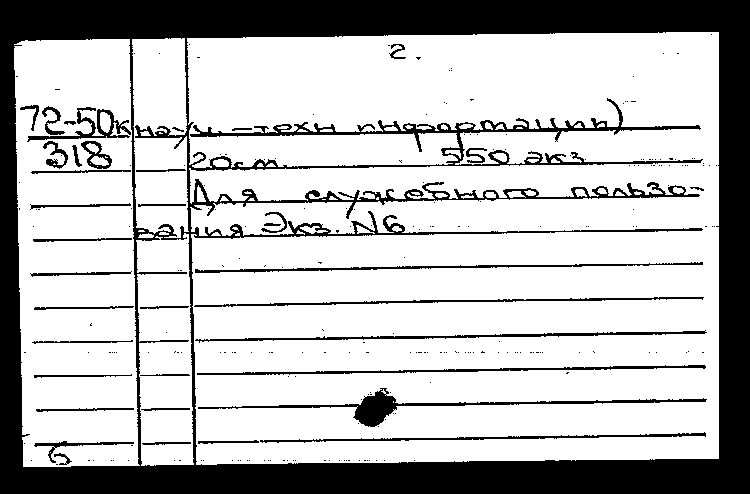 2.
72-50к науч.-техн информации)
318 20см. 550 экз
Для служебного пользо-
вания Экз. N6
6